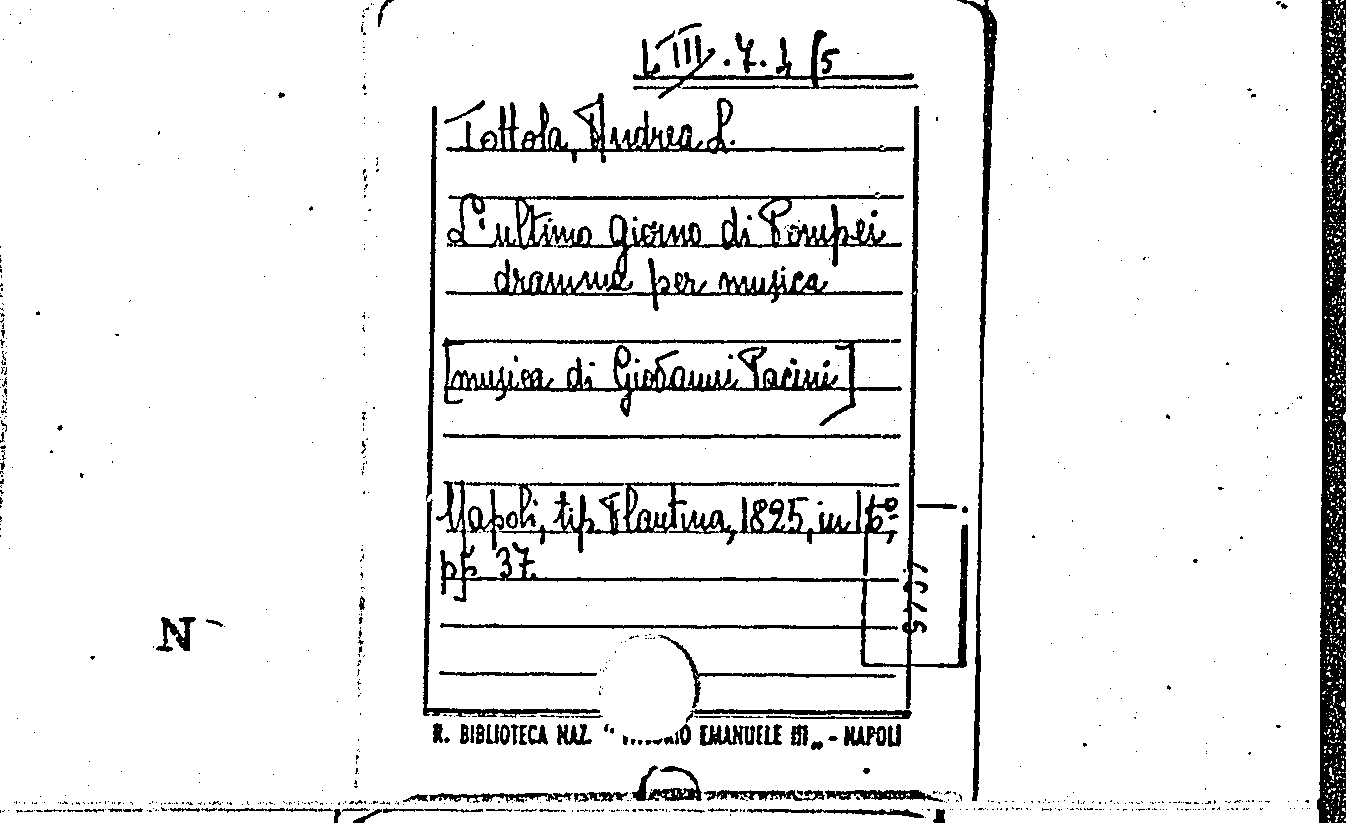 L. III. 7. 1 (5
Tottola, Andrea L.
L'ultimo giorno di Pompei
dramma per musica
[musica di Giovanni Pacini]
Napoli, tip. Flautina, 1825, in 16º,
pp. 37.
N
R. BIBLIOTECA NAZ. " VITTORIO EMANUELE III „ - NAPOLI